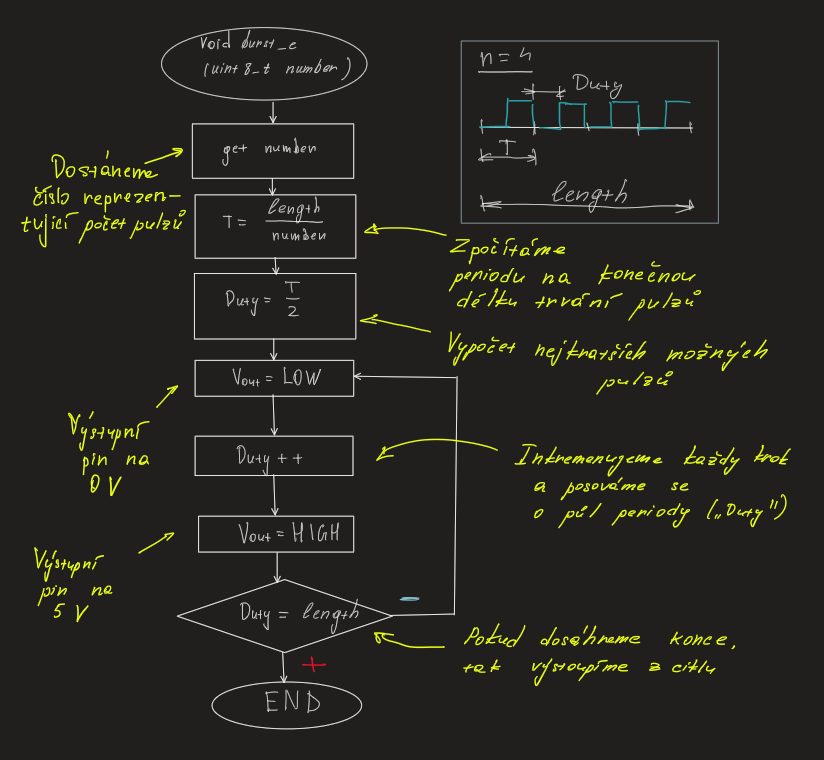 void burst_c
(uint8_t number)
get number
Dostáneme
číslo reprezen-
tující počet pulzů
T = length
number
Zpočítáme
periodu na konečnou
délku trvání pulzů
Duty = T
2
Vypočet nejkratších možných
pulzů
Vout = LOW
Výstupní
pin na
0 V
Duty ++
Inkremenujeme každy krok
a posováme se
o půl periody („Duty")
Vout = HIGH
Výstupní
pin na
5 V
Duty = length
–
+
Pokud dosáhneme konce,
tak výstoupíme z ciklu
END
n = 4
Duty
T
length